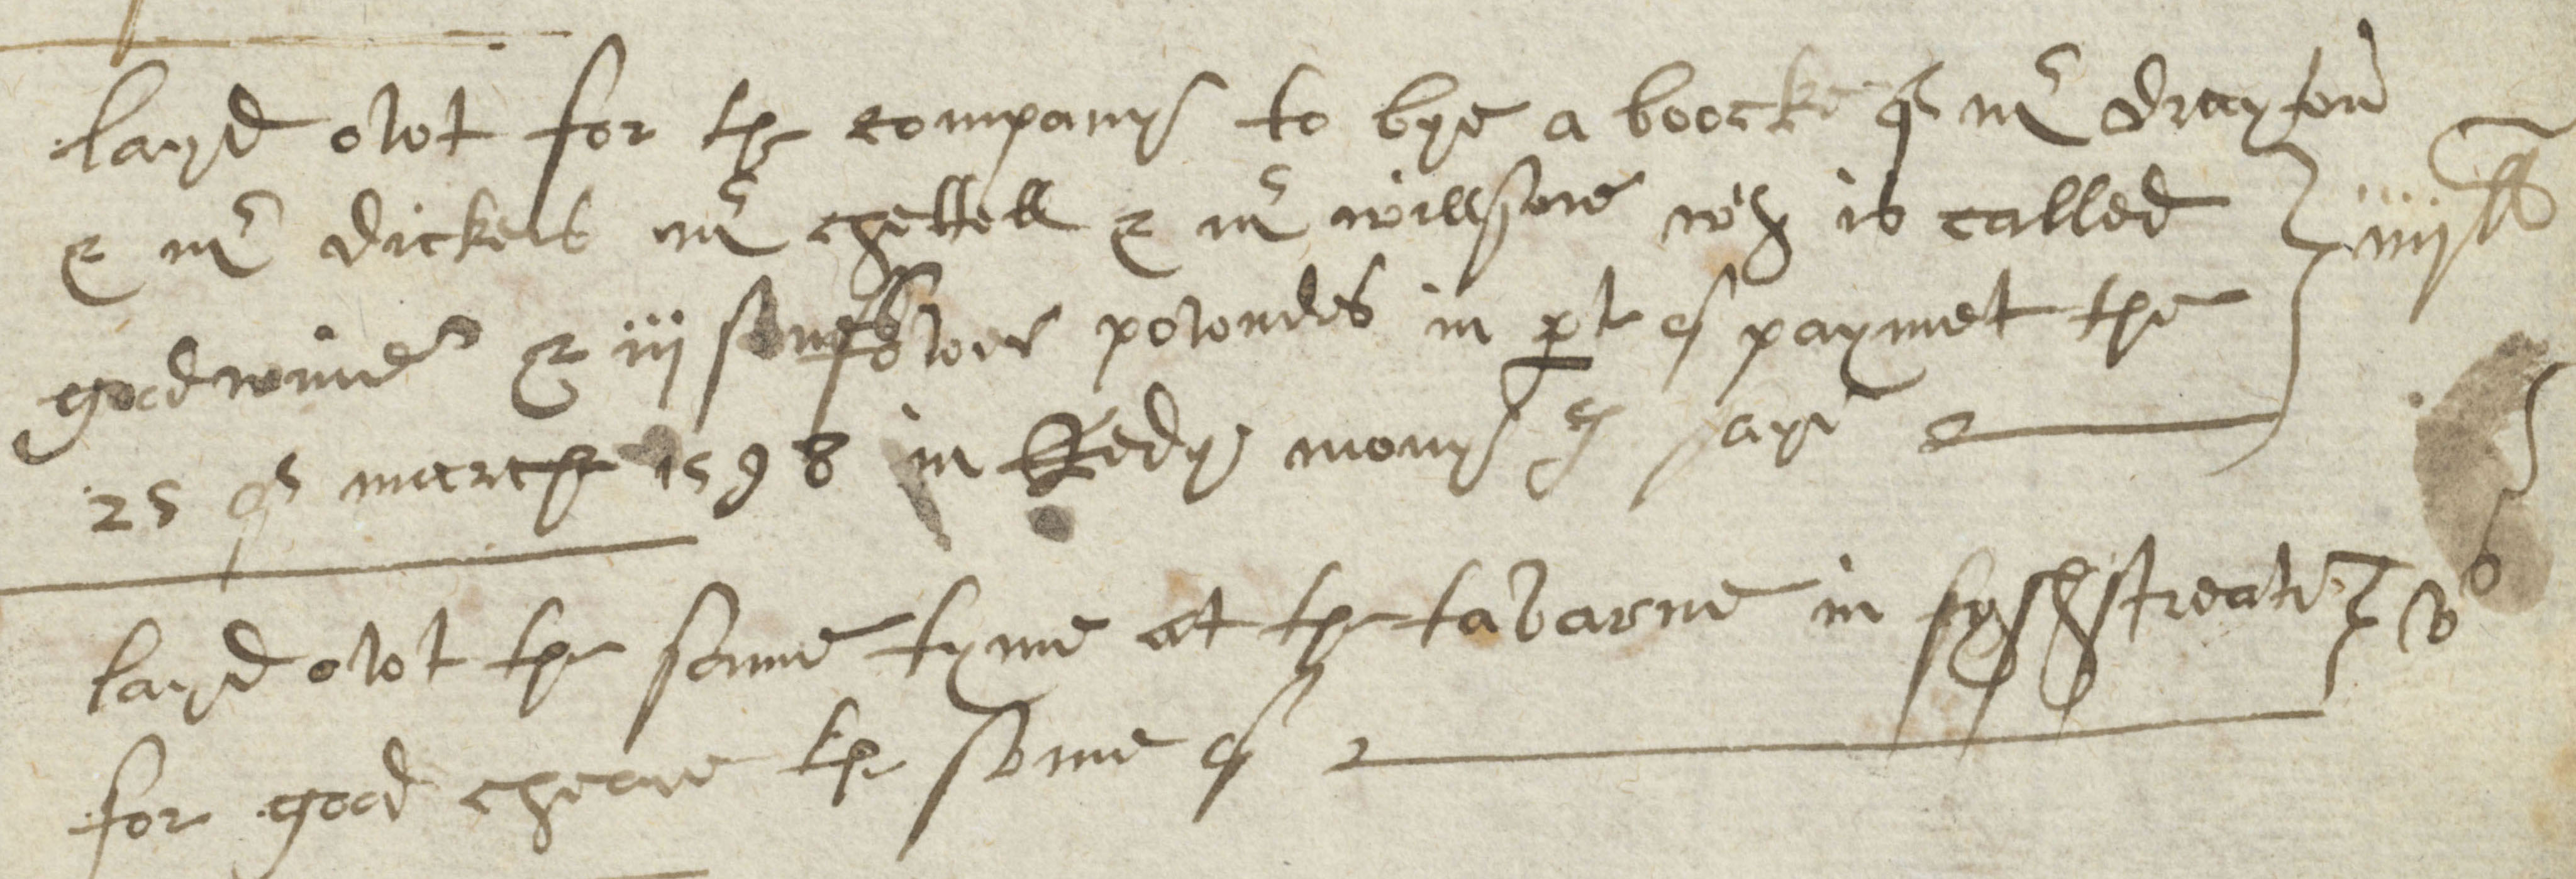 layd owt for the companye to bye a boocke of mr drayton
& mr dickers mr chettell & mr willsone wch is called iiijli
goodwine & iij sones fower powndes in pt of paymet the
25 of march 1598 in Redy mony I saye
layd owt the same tyme at the tavarne in fyshstreate vs
for good cheare the some of